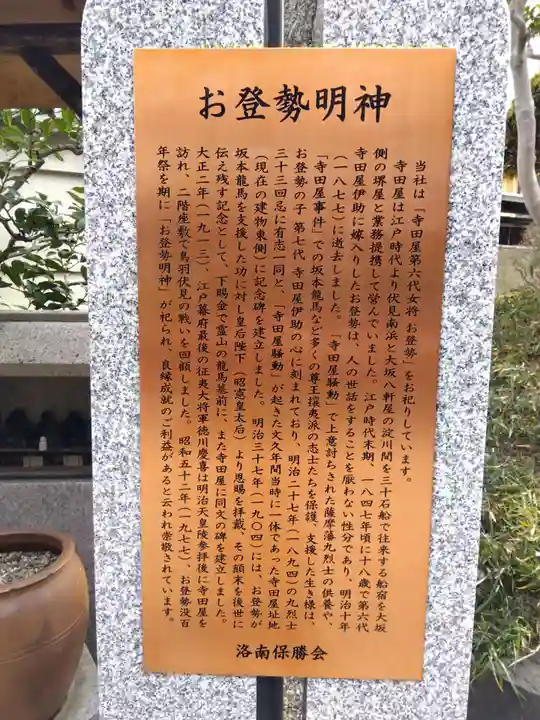 お登勢明神
当社は「寺田屋第六代女将 お登勢」をお祀りしています。
寺田屋は江戸時代より伏見南浜と大坂八軒屋の淀川間を三十石船で往来する船宿を大坂
側の堺屋と業務提携して営んでいました。江戸時代末期、一八四七年頃に十八歳で第六代
寺田屋伊助に嫁入りしたお登勢は、人の世話をすることを厭わない性分であり、明治十年
（一八七七）に逝去しました。「寺田屋騒動」で上意討ちされた薩摩藩九烈士の供養や、
「寺田屋事件」での坂本龍馬など多くの尊王攘夷派の志士たちを保護、支援した生き様は、
お登勢の子 第七代 寺田屋伊助の心に刻まれており、明治二十七年（一八九四）の九烈士
三十三回忌に有志一同と、「寺田屋騒動」が起きた文久年間当時に一体であった寺田屋址地
（現在の建物東側）に記念碑を建立しました。明治三十七年（一九〇四）には、お登勢が
坂本龍馬を支援した功に対し皇后陛下（昭憲皇太后）より恩賜を拝戴、その顛末を後世に
伝え残す記念として、下賜金で霊山の龍馬墓前に、また寺田屋に同文の碑を建立しました。
大正二年（一九一三）、江戸幕府最後の征夷大将軍徳川慶喜は明治天皇陵参拝後に寺田屋を
訪れ、二階座敷で鳥羽伏見の戦いを回顧しました。昭和五十二年（一九七七）、お登勢没百
年祭を期に「お登勢明神」が祀られ、良縁成就のご利益があると云われ崇敬されています。
洛南保勝会